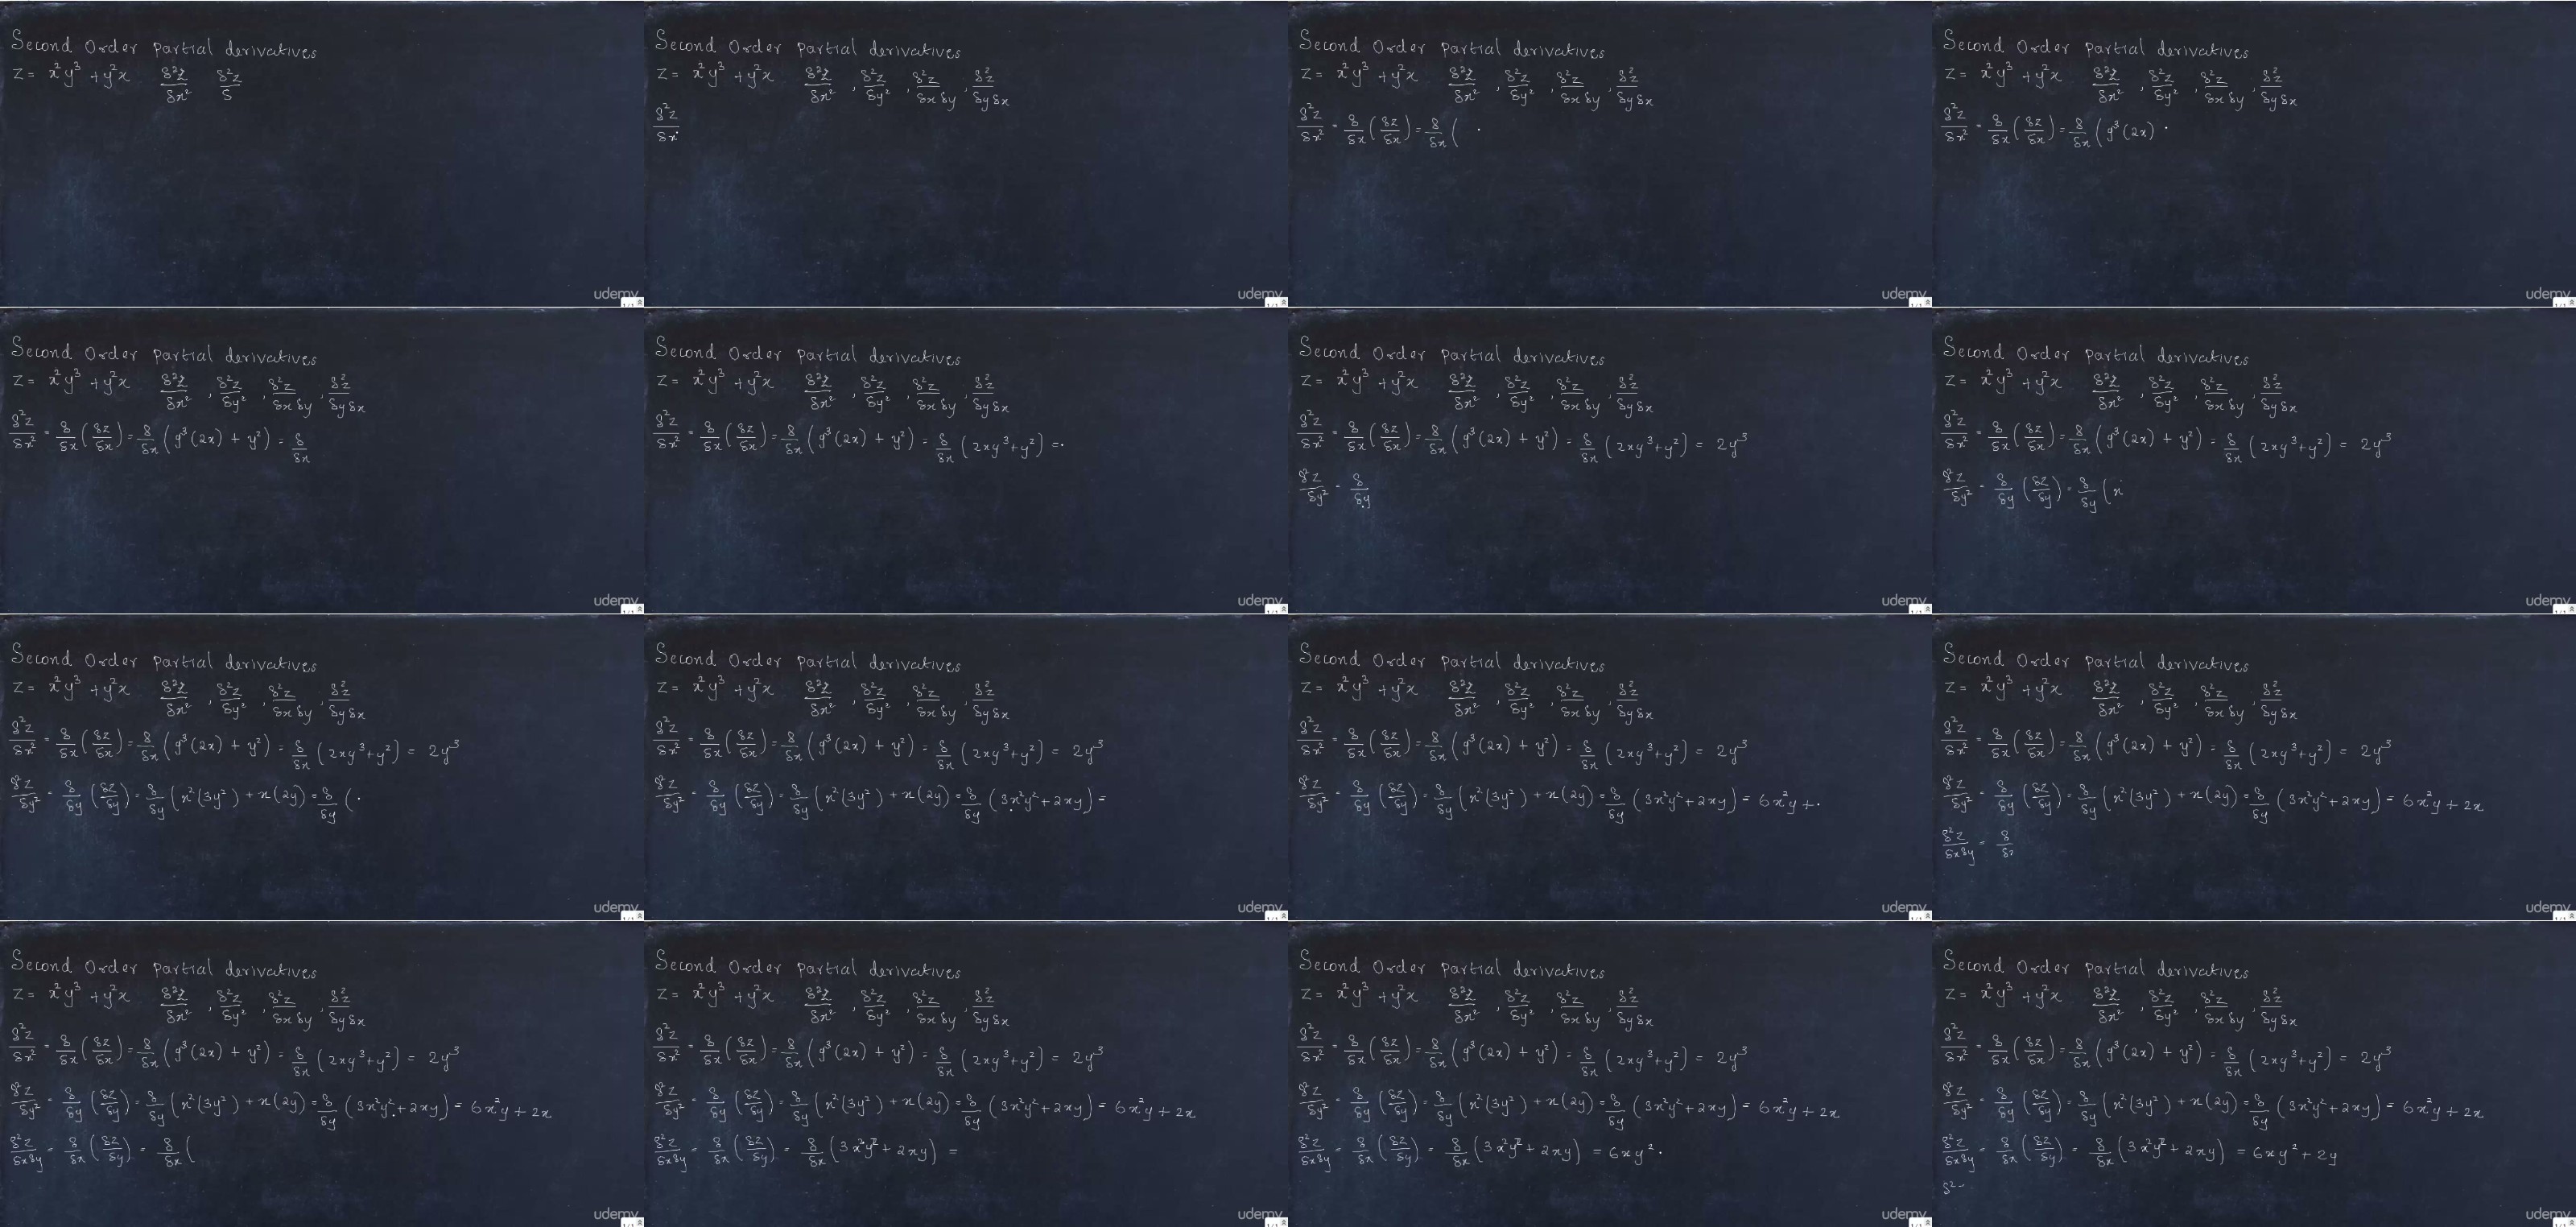 Second Order partial derivatives
z = x²y³ + y²x δ²z/δx² δ²z/δ
udemy
Second Order partial derivatives
z = x²y³ + y²x δ²z/δx² , δ²z/δy² , δ²z/δxδy , δ²z/δyδx
δ²z/δx
udemy
Second Order partial derivatives
z = x²y³ + y²x δ²z/δx² , δ²z/δy² , δ²z/δxδy , δ²z/δyδx
δ²z/δx² = δ/δx (δz/δx) = δ/δx (
udemy
Second Order partial derivatives
z = x²y³ + y²x δ²z/δx² , δ²z/δy² , δ²z/δxδy , δ²z/δyδx
δ²z/δx² = δ/δx (δz/δx) = δ/δx (y³(2x)
udemy
Second Order partial derivatives
z = x²y³ + y²x δ²z/δx² , δ²z/δy² , δ²z/δxδy , δ²z/δyδx
δ²z/δx² = δ/δx (δz/δx) = δ/δx (y³(2x) + y²) = δ/δx
udemy
Second Order partial derivatives
z = x²y³ + y²x δ²z/δx² , δ²z/δy² , δ²z/δxδy , δ²z/δyδx
δ²z/δx² = δ/δx (δz/δx) = δ/δx (y³(2x) + y²) = δ/δx (2xy³+y²) =
udemy
Second Order partial derivatives
z = x²y³ + y²x δ²z/δx² , δ²z/δy² , δ²z/δxδy , δ²z/δyδx
δ²z/δx² = δ/δx (δz/δx) = δ/δx (y³(2x) + y²) = δ/δx (2xy³+y²) = 2y³
δ²z/δy² = δ/δy
udemy
Second Order partial derivatives
z = x²y³ + y²x δ²z/δx² , δ²z/δy² , δ²z/δxδy , δ²z/δyδx
δ²z/δx² = δ/δx (δz/δx) = δ/δx (y³(2x) + y²) = δ/δx (2xy³+y²) = 2y³
δ²z/δy² = δ/δy (δz/δy) = δ/δy (x
udemy
Second Order partial derivatives
z = x²y³ + y²x δ²z/δx² , δ²z/δy² , δ²z/δxδy , δ²z/δyδx
δ²z/δx² = δ/δx (δz/δx) = δ/δx (y³(2x) + y²) = δ/δx (2xy³+y²) = 2y³
δ²z/δy² = δ/δy (δz/δy) = δ/δy (x²(3y²) + x(2y) = δ/δy (
udemy
Second Order partial derivatives
z = x²y³ + y²x δ²z/δx² , δ²z/δy² , δ²z/δxδy , δ²z/δyδx
δ²z/δx² = δ/δx (δz/δx) = δ/δx (y³(2x) + y²) = δ/δx (2xy³+y²) = 2y³
δ²z/δy² = δ/δy (δz/δy) = δ/δy (x²(3y²) + x(2y) = δ/δy (3x²y²+2xy) =
udemy
Second Order partial derivatives
z = x²y³ + y²x δ²z/δx² , δ²z/δy² , δ²z/δxδy , δ²z/δyδx
δ²z/δx² = δ/δx (δz/δx) = δ/δx (y³(2x) + y²) = δ/δx (2xy³+y²) = 2y³
δ²z/δy² = δ/δy (δz/δy) = δ/δy (x²(3y²) + x(2y) = δ/δy (3x²y²+2xy) = 6x²y +
udemy
Second Order partial derivatives
z = x²y³ + y²x δ²z/δx² , δ²z/δy² , δ²z/δxδy , δ²z/δyδx
δ²z/δx² = δ/δx (δz/δx) = δ/δx (y³(2x) + y²) = δ/δx (2xy³+y²) = 2y³
δ²z/δy² = δ/δy (δz/δy) = δ/δy (x²(3y²) + x(2y) = δ/δy (3x²y²+2xy) = 6x²y + 2x
δ²z/δxδy = δ/δx
udemy
Second Order partial derivatives
z = x²y³ + y²x δ²z/δx² , δ²z/δy² , δ²z/δxδy , δ²z/δyδx
δ²z/δx² = δ/δx (δz/δx) = δ/δx (y³(2x) + y²) = δ/δx (2xy³+y²) = 2y³
δ²z/δy² = δ/δy (δz/δy) = δ/δy (x²(3y²) + x(2y) = δ/δy (3x²y²+2xy) = 6x²y + 2x
δ²z/δxδy = δ/δx (δz/δy) = δ/δx (
udemy
Second Order partial derivatives
z = x²y³ + y²x δ²z/δx² , δ²z/δy² , δ²z/δxδy , δ²z/δyδx
δ²z/δx² = δ/δx (δz/δx) = δ/δx (y³(2x) + y²) = δ/δx (2xy³+y²) = 2y³
δ²z/δy² = δ/δy (δz/δy) = δ/δy (x²(3y²) + x(2y) = δ/δy (3x²y²+2xy) = 6x²y + 2x
δ²z/δxδy = δ/δx (δz/δy) = δ/δx (3x²y² + 2xy) =
udemy
Second Order partial derivatives
z = x²y³ + y²x δ²z/δx² , δ²z/δy² , δ²z/δxδy , δ²z/δyδx
δ²z/δx² = δ/δx (δz/δx) = δ/δx (y³(2x) + y²) = δ/δx (2xy³+y²) = 2y³
δ²z/δy² = δ/δy (δz/δy) = δ/δy (x²(3y²) + x(2y) = δ/δy (3x²y²+2xy) = 6x²y + 2x
δ²z/δxδy = δ/δx (δz/δy) = δ/δx (3x²y² + 2xy) = 6xy²
udemy
Second Order partial derivatives
z = x²y³ + y²x δ²z/δx² , δ²z/δy² , δ²z/δxδy , δ²z/δyδx
δ²z/δx² = δ/δx (δz/δx) = δ/δx (y³(2x) + y²) = δ/δx (2xy³+y²) = 2y³
δ²z/δy² = δ/δy (δz/δy) = δ/δy (x²(3y²) + x(2y) = δ/δy (3x²y²+2xy) = 6x²y + 2x
δ²z/δxδy = δ/δx (δz/δy) = δ/δx (3x²y² + 2xy) = 6xy² + 2y
δ²
udemy